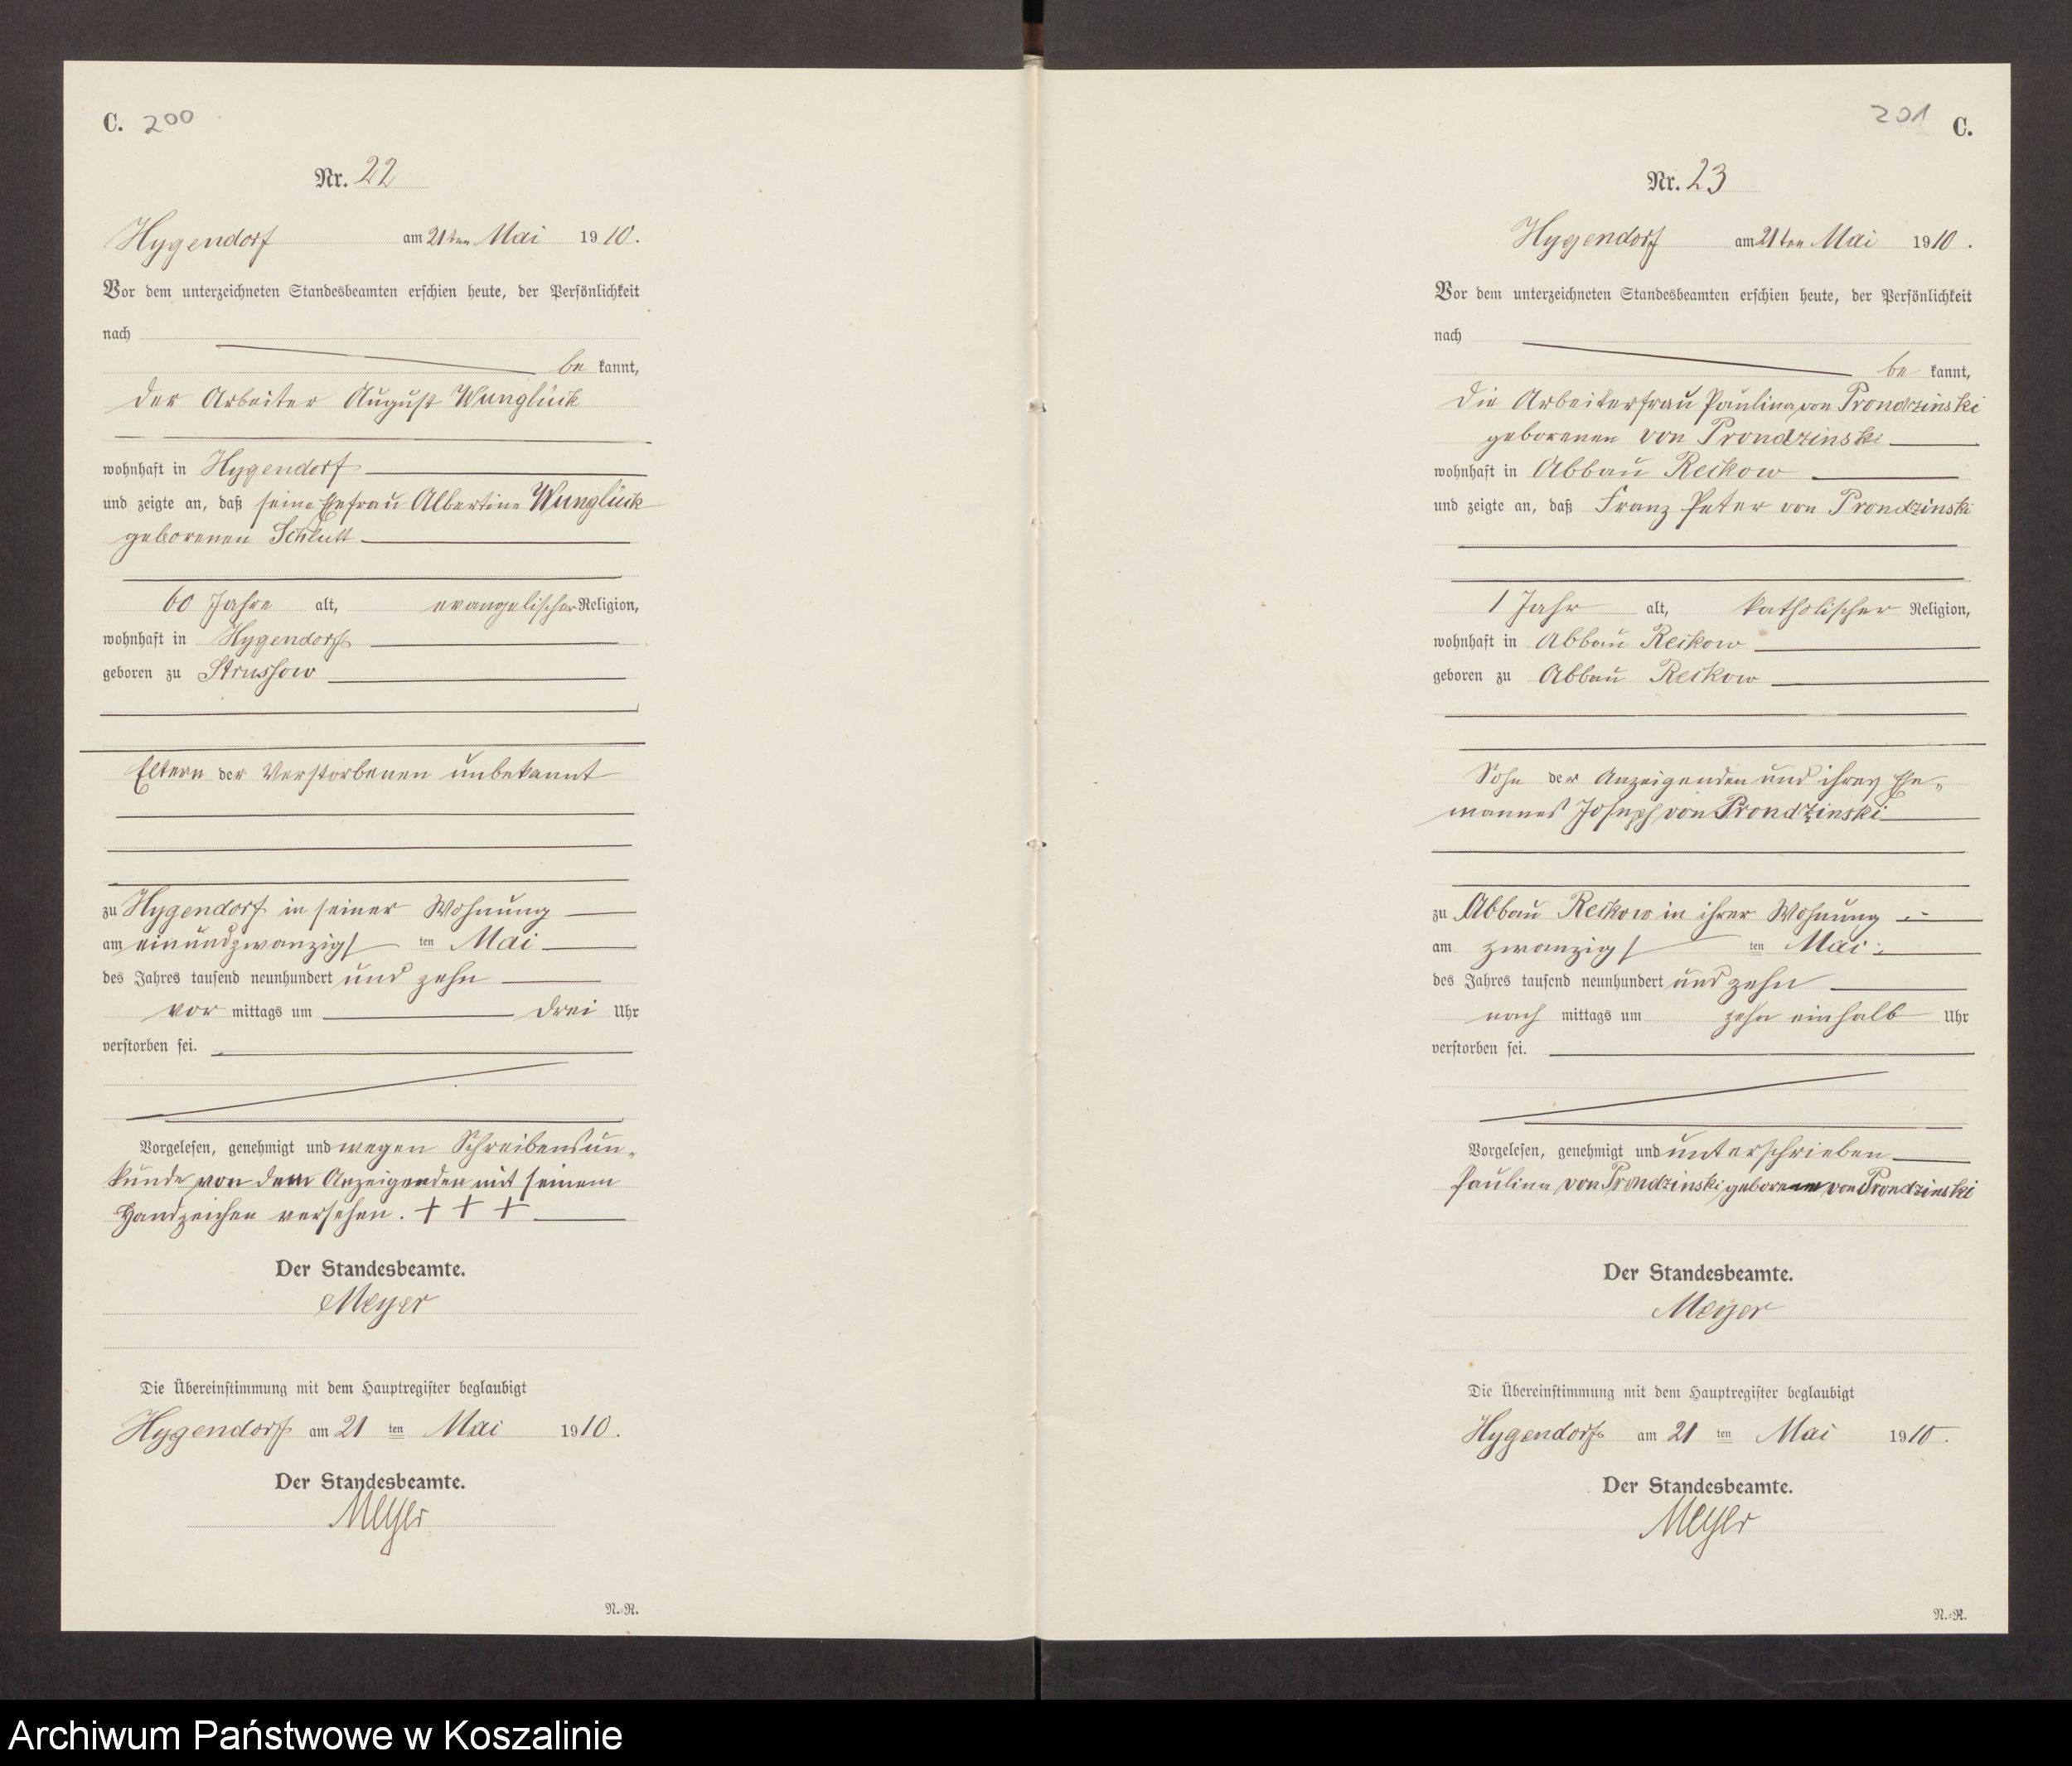 C. 200
Nr. 22
Hygendorf am 21ten Mai 1910.
Vor dem unterzeichneten Standesbeamten erschien heute, der Persönlichkeit
nach
be kannt,
der Arbeiter August Wunglück
wohnhaft in Hygendorf
und zeigte an, daß seine Ehefrau Albertine Wunglück
geborenen Schlutt
60 Jahre alt, evangelischer Religion,
wohnhaft in Hygendorf
geboren zu Strussow
Eltern der Verstorbenen unbekannt
zu Hygendorf in seiner Wohnung
am einundzwanzigsten Mai
des Jahres tausend neunhundert und zehn
vor mittags um drei Uhr
verstorben sei.
Vorgelesen, genehmigt und wegen Schreibensun-
kunde von dem Anzeigenden mit seinem
Handzeichen versehen. + + +
Der Standesbeamte.
Meyer
Die Übereinstimmung mit dem Hauptregister beglaubigt
Hygendorf am 21 ten Mai 1910.
Der Standesbeamte.
Meyer
N.-R.
201 C.
Nr. 23
Hygendorf am 21ten Mai 1910.
Vor dem unterzeichneten Standesbeamten erschien heute, der Persönlichkeit
nach
be kannt,
die Arbeiterfrau Paulina von Prondzinski
geborenen von Prondzinski
wohnhaft in Abbau Reikow
und zeigte an, daß Franz Peter von Prondzinski
1 Jahr alt, katholischer Religion,
wohnhaft in Abbau Reikow
geboren zu Abbau Reikow
Sohn der Anzeigenden und ihres Ehe-
mannes Joseph von Prondzinski
zu Abbau Reikow in ihrer Wohnung
am zwanzigsten Mai
des Jahres tausend neunhundert und zehn
nach mittags um zehn einhalb Uhr
verstorben sei.
Vorgelesen, genehmigt und unterschrieben
Paulina von Prondzinski geborene von Prondzinski
Der Standesbeamte.
Meyer
Die Übereinstimmung mit dem Hauptregister beglaubigt
Hygendorf am 21 ten Mai 1910.
Der Standesbeamte.
Meyer
N.-R.
Archiwum Państwowe w Koszalinie